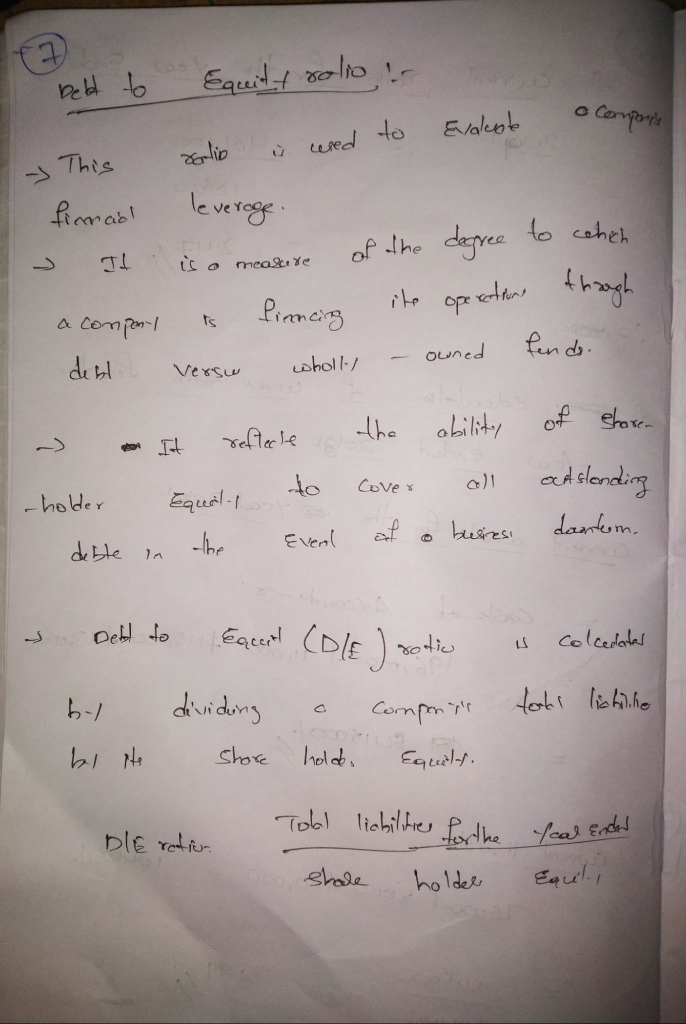 7
Debt to Equity ratio :-
→ This ratio is used to Evaluate a company's
financial leverage.
→ It is a measure of the degree to which
a company is financing its operations through
debt versus wholly - owned funds.
→ It reflects the ability of share-
-holder Equity to cover all outstanding
debts in the Event of a business downturn.
→ Debt to Equity (D/E) ratio is calculated
by dividing a company's total liabilities
by its share holder Equity.
D/E ratio = Total liabilities for the year ended
share holder Equity